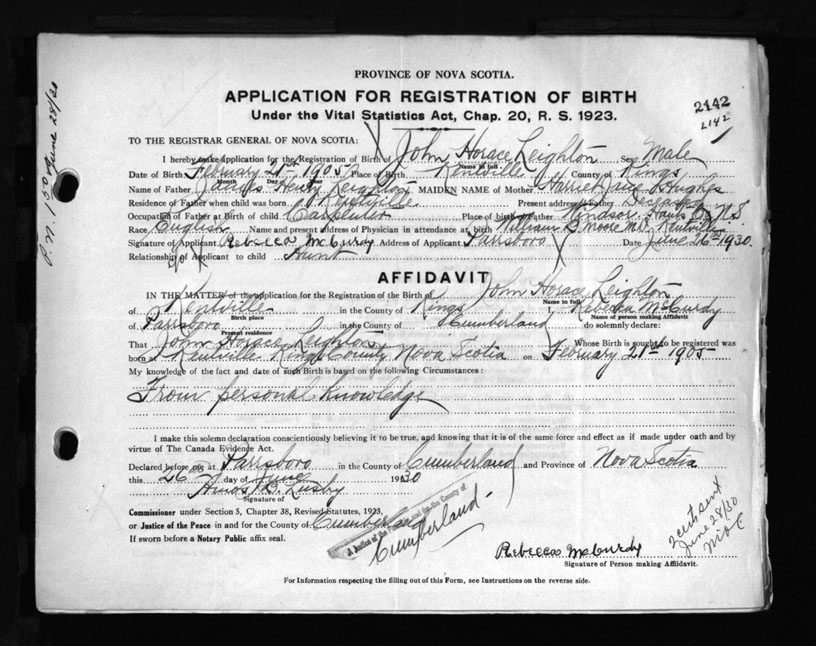 PROVINCE OF NOVA SCOTIA.
APPLICATION FOR REGISTRATION OF BIRTH
Under the Vital Statistics Act, Chap. 20, R. S. 1923.
2142
2142
P.N. 1.50 June 28/30
TO THE REGISTRAR GENERAL OF NOVA SCOTIA:
I hereby make application for the Registration of Birth of John Horace Leighton Sex Male
Name in full
Date of Birth February 21st 1905 Place of Birth Kentville County of Kings
Month Day
Name of Father Henry Leighton MAIDEN NAME of Mother Harriet Jane Hughes
Residence of Father when child was born Kentville Present address of father Deceased
Occupation of Father at Birth of child Carpenter Place of birth of father Windsor Hants Co N.S.
Race English Name and present address of Physician in attendance at birth William B Moore M.D. Kentville
Signature of Applicant Rebecca McCurdy Address of Applicant Parrsboro Date June 26th 1930.
Relationship of Applicant to child Aunt
AFFIDAVIT
IN THE MATTER of the application for the Registration of the Birth of John Horace Leighton
Name in full
of Kentville in the County of Kings I Rebecca McCurdy
Birth place Name of person making Affidavit
of Parrsboro in the County of Cumberland do solemnly declare:
Present residence
That John Horace Leighton Whose Birth is sought to be registered was
born at Kentville Kings County Nova Scotia on February 21st 1905
My knowledge of the fact and date of such Birth is based on the following Circumstances:
From personal knowledge
I make this solemn declaration conscientiously believing it to be true, and knowing that it is of the same force and effect as if made under oath and by
virtue of The Canada Evidence Act.
Declared before me at Parrsboro in the County of Cumberland and Province of Nova Scotia
this 26 day of June 1930
Amos B. Lusby
Signature of
Commissioner under Section 5, Chapter 38, Revised Statutes, 1923,
or Justice of the Peace in and for the County of Cumberland
If sworn before a Notary Public affix seal.
A Justice of the Peace in and for the County of
Cumberland
sent
June 28/30
Rebecca McCurdy
Signature of Person making Affidavit.
For Information respecting the filling out of this Form, see Instructions on the reverse side.